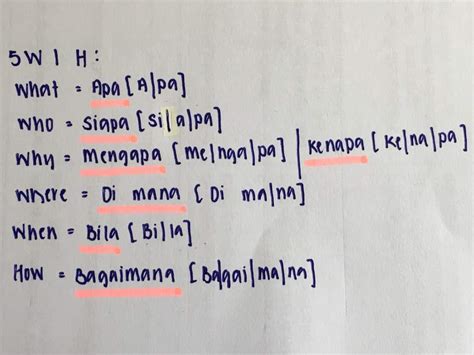 5W 1 H:
What = Apa [A|pa]
Who = Siapa [Si|a|pa]
Why = Mengapa [me|nga|pa] | Kenapa [ke|na|pa]
Where = Di mana [Di ma|na]
When = Bila [Bi|la]
How = Bagaimana [Ba|gai|ma|na]